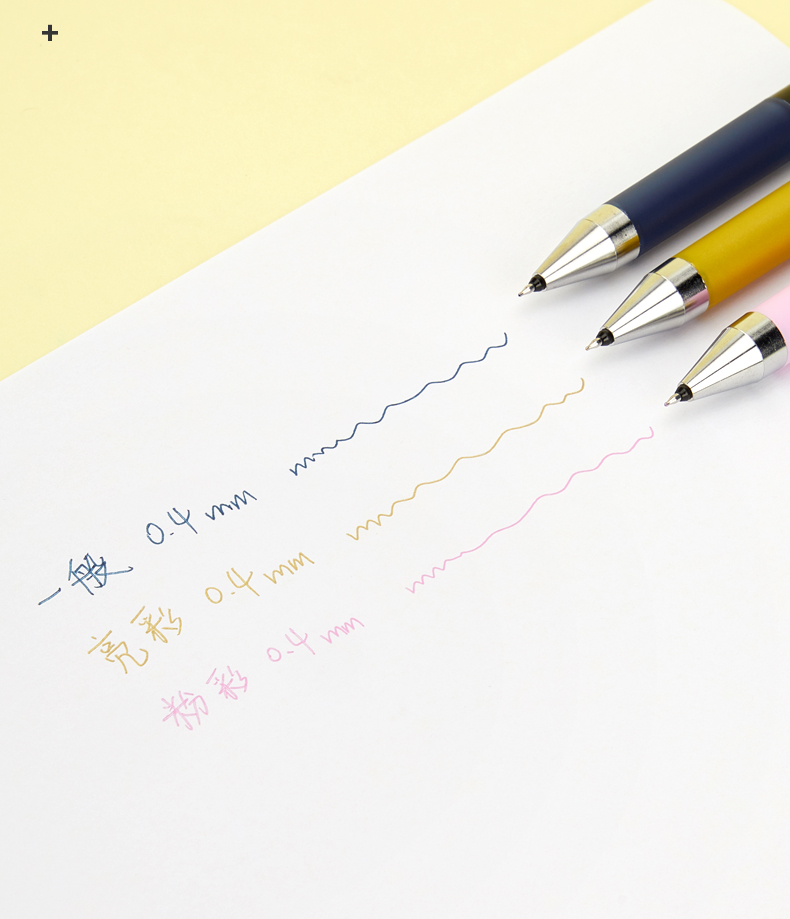 一般 0.4 mm
亮彩 0.4 mm
粉彩 0.4 mm